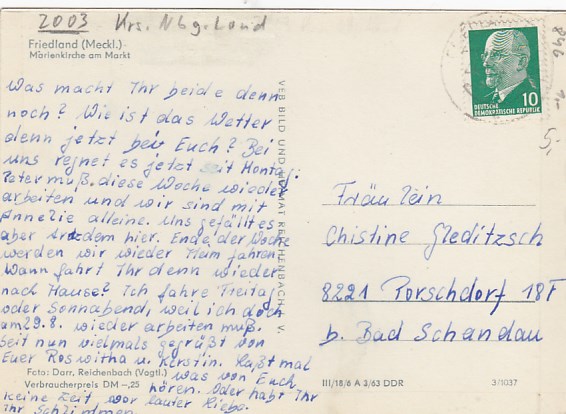 2003 Krs. Nbg. Land
Friedland (Meckl.)-
Marienkirche am Markt
Was macht Ihr beide denn
noch? Wie ist das Wetter
denn jetzt bei Euch? Bei
uns regnet es jetzt seit Montag.
Peter muß diese Woche wieder
arbeiten und wir sind mit
Annelie alleine. Uns gefällt es
aber trotzdem hier. Ende der Woche
werden wir wieder Heim fahren.
Wann fahrt Ihr denn wieder
nach Hause? Ich fahre Freitag
oder Sonnabend, weil ich doch
am 29.8. wieder arbeiten muß.
Seit nun vielmals gegrüßt von
Euer Roswitha u. Kerstin. Laßt mal
was von Euch
hören. Oder habt Ihr
keine Zeit vor lauter Liebe.
Ihr Schlimmen
Foto: Darr, Reichenbach (Vogtl.)
Verbraucherpreis DM -,25
VEB BILD UND HEIMAT REICHENBACH I. V.
DEUTSCHE
DEMOKRATISCHE REPUBLIK
10
846
5,-
Fräulein
Chistine Gleditzsch
8221 Porschdorf 18F
b. Bad Schandau
III/18/6 A 3/63 DDR
3/1037